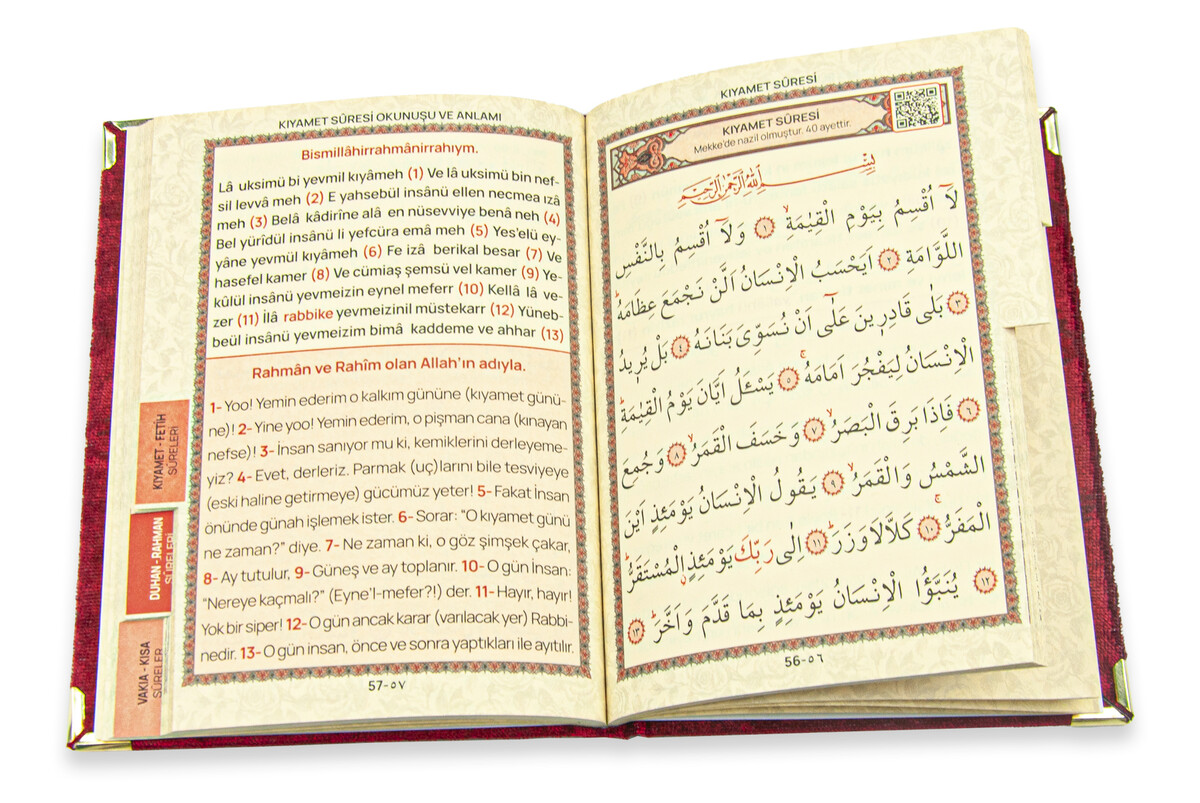 KIYAMET SÛRESİ
KIYAMET SÛRESİ
Mekke'de nazil olmuştur. 40 ayettir.
بِسْمِ اللّٰهِ الرَّحْمٰنِ الرَّحِيمِ
لَٓا اُقْسِمُ بِيَوْمِ الْقِيٰمَةِۙ ﴿١﴾ وَلَٓا اُقْسِمُ بِالنَّفْسِ
اللَّوَّامَةِ ﴿٢﴾ اَيَحْسَبُ الْاِنْسَانُ اَلَّنْ نَجْمَعَ عِظَامَهُۜ
﴿٣﴾ بَلٰى قَادِرِينَ عَلٰٓى اَنْ نُسَوِّيَ بَنَانَهُ ﴿٤﴾ بَلْ يُرِيدُ
الْاِنْسَانُ لِيَفْجُرَ اَمَامَهُۚ ﴿٥﴾ يَسْـَٔلُ اَيَّانَ يَوْمُ الْقِيٰمَةِۜ
﴿٦﴾ فَاِذَا بَرِقَ الْبَصَرُۙ ﴿٧﴾ وَخَسَفَ الْقَمَرُۙ ﴿٨﴾ وَجُمِعَ
الشَّمْسُ وَالْقَمَرُۙ ﴿٩﴾ يَقُولُ الْاِنْسَانُ يَوْمَئِذٍ اَيْنَ
الْمَفَرُّۚ ﴿١٠﴾ كَلَّا لَا وَزَرَۜ ﴿١١﴾ اِلٰى رَبِّكَ يَوْمَئِذٍۨ الْمُسْتَقَرُّۜ
﴿١٢﴾ يُنَبَّؤُا الْاِنْسَانُ يَوْمَئِذٍ بِمَا قَدَّمَ وَاَخَّرَۜ ﴿١٣﴾
56-٥٦
KIYAMET SÛRESİ OKUNUŞU VE ANLAMI
Bismillâhirrahmânirrahıym.
Lâ uksimü bi yevmil kıyâmeh (1) Ve lâ uksimü bin nef-
sil levvâ meh (2) E yahsebül insânü ellen necmea ızâ
meh (3) Belâ kâdirîne alâ en nüsevviye benâ neh (4)
Bel yürîdül insânü li yefcüra emâ meh (5) Yes'elü ey-
yâne yevmül kıyâmeh (6) Fe izâ berikal besar (7) Ve
hasefel kamer (8) Ve cümiaş şemsü vel kamer (9) Ye-
kûlül insânü yevmeizin eynel meferr (10) Kellâ lâ ve-
zer (11) İlâ rabbike yevmeizinil müstekarr (12) Yüneb-
beül insânü yevmeizim bimâ kaddeme ve ahhar (13)
Rahmân ve Rahîm olan Allah'ın adıyla.
1- Yoo! Yemin ederim o kalkım gününe (kıyamet günü-
ne)! 2- Yine yoo! Yemin ederim, o pişman cana (kınayan
nefse)! 3- İnsan sanıyor mu ki, kemiklerini derleyeme-
yiz? 4- Evet, derleriz. Parmak (uç)larını bile tesviyeye
(eski haline getirmeye) gücümüz yeter! 5- Fakat İnsan
önünde günah işlemek ister. 6- Sorar: "O kıyamet günü
ne zaman?" diye. 7- Ne zaman ki, o göz şimşek çakar,
8- Ay tutulur, 9- Güneş ve ay toplanır. 10- O gün İnsan:
"Nereye kaçmalı?" (Eyne'l-mefer?!) der. 11- Hayır, hayır!
Yok bir siper! 12- O gün ancak karar (varılacak yer) Rabbi-
nedir. 13- O gün insan, önce ve sonra yaptıkları ile ayıtılır.
57-٥٧
KIYAMET - FETİH
SÛRELERİ
DUHAN - RAHMAN
SÛRELERİ
VAKIA - KISA
SÛRELER